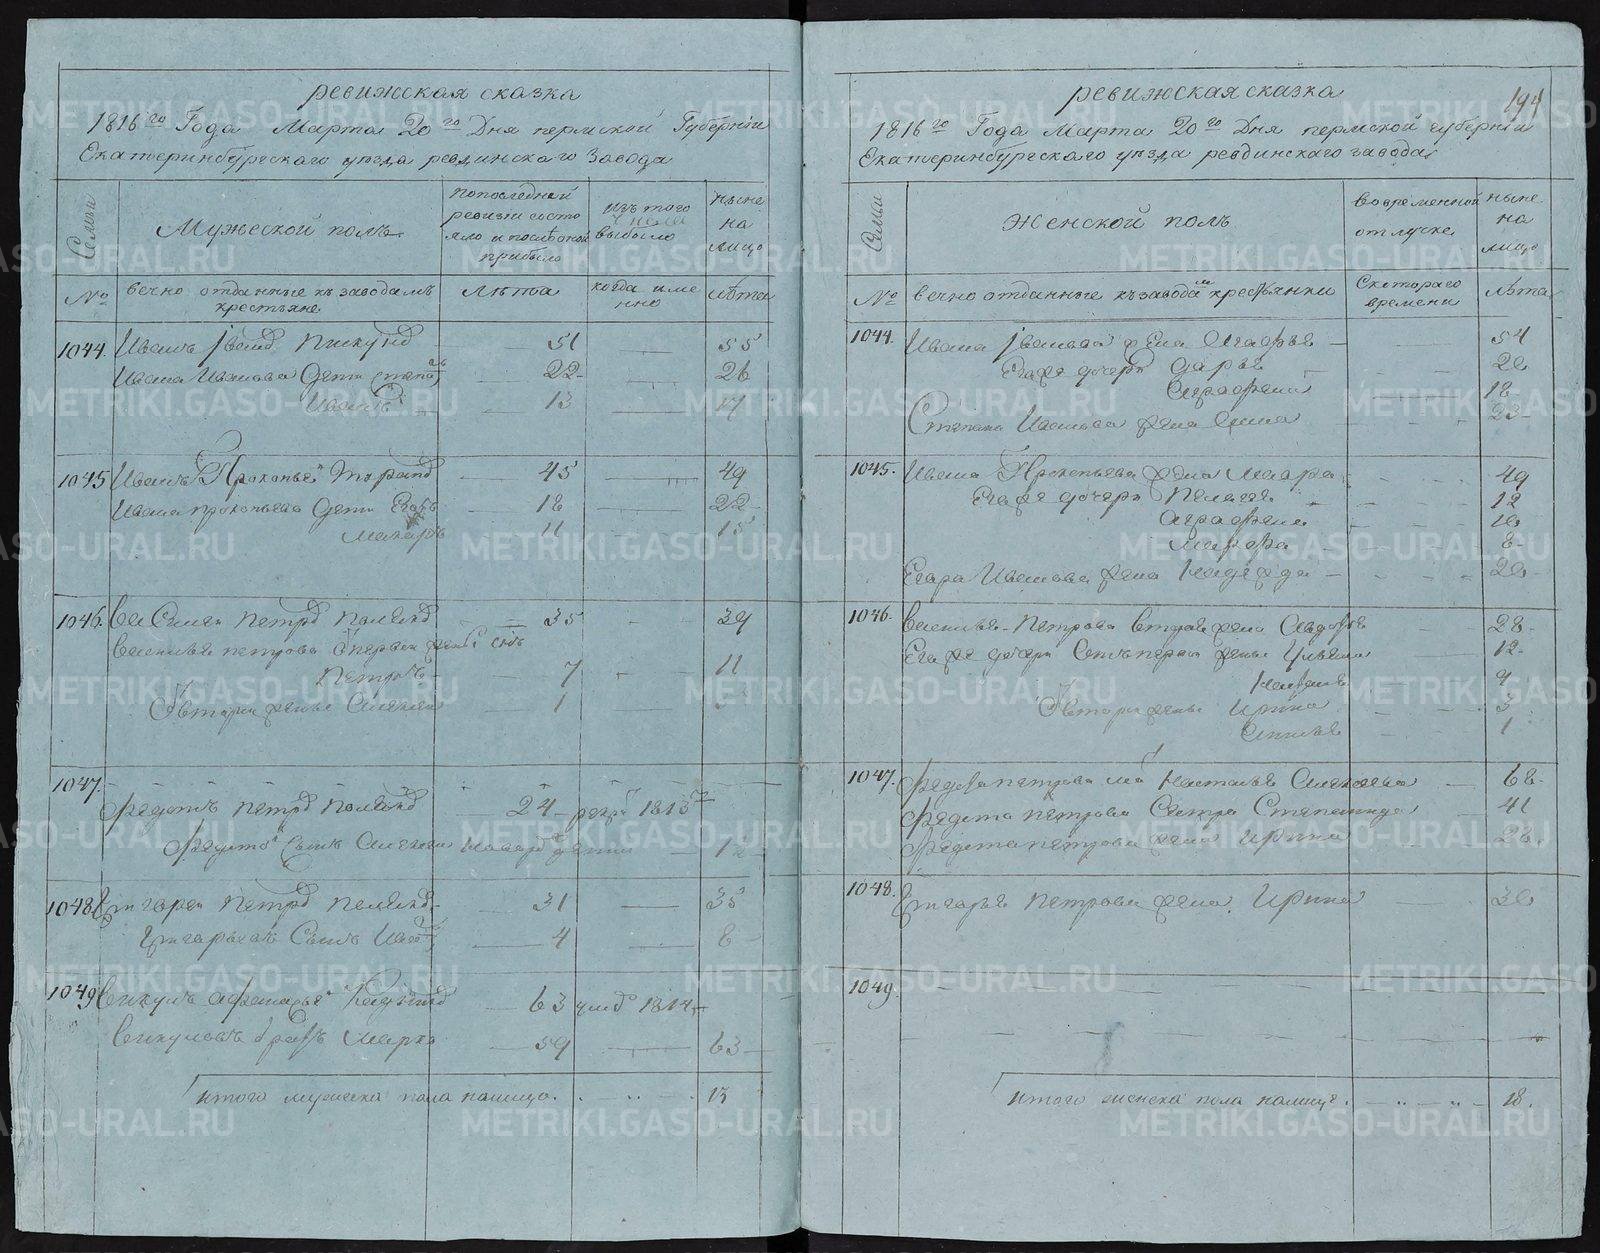 ревижская сказка
1816го Года Марта 20го Дня пермской Губернiи
Екатеринбургского уезда ревдинского завода
Семьи
Мужеской полъ
попоследней ревизи состояло и после оной прибыло
изъ того числа выбыло
ныне на лицо
№
вечно отданные къ заводамъ крестьяне
лѣта
когда именно
лѣта
1044. Иванъ Iвановъ 51 55
Ивана Иванова дети Степанъ 22 26
Иванъ 13 17
1045 Иванъ Прокопьевъ 45 49
Ивана прокопьева дети Егоръ 18 22
макаръ 11 15
1046. Василеи петровъ 35 39
Василья петрова первой жены сынъ
Петръ 7 11
Отвторой жены Алексеи 1
1047. Федотъ петровъ 24 1813
Федота сынъ Алексеи 12
1048 Григореи петровъ 31 35
Григорьевъ сынъ Иванъ 4 8
1049 Викулъ 63 1814
Викуловъ братъ Марко 59 63
итого мужеска пола налицо 13
194
ревижская сказка
1816го Года Марта 20го Дня пермской губернiи
Екатеринбургскаго уезда ревдинскаго завода
Семьи
Женской полъ
во временной отлучке
ныне на лицо
№
вечно отданные къ заводамъ крестьянки
Скотораго времени
лѣта
1044. Ивана Iванова жена Агафья 54
Егоже дочери Дарья 20
Аграфена 18
Степана Иванова жена 23
1045. Ивана Прокопьева жена Мавра 49
Егоже дочери Пелагея 12
Аграфена 10
Марфа 8
Егора Иванова жена Надежда 20
1046. Василья Петрова вторая жена Авдотья 28
Егоже дочери отъ первой жены Ульяна 12
Наталья 9
Отвторой жены Ирина 3
1
1047. Федота петрова мать Наталья Алексеева 68
Федота петрова сестра Степанида 41
Федота петрова жена Ирина 28
1048. Григорья Петрова жена Ирина 30
1049.
итого женска пола налицо 18.
METRIKI.GASO-URAL.RU